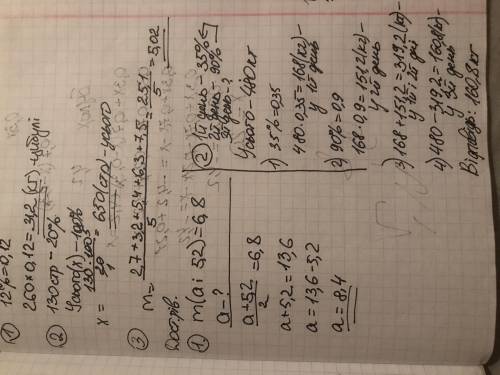 ① 12%=0,12
260×0,12=31,2 (кг) - цибулі
② 130стр - 20%
Усього(x) - 100%
x = 130·100% / 20 = 650(стр) - усього
1
③ m = 27+3,2+5,4+6,3+7,5 / 5 = 25,1 / 5 = 5,02
Дост.рів.
① m(a і 5,2)=6,8
a - ?
a+5,2 / 2 = 6,8
a+5,2=13,6
a=13,6-5,2
a=8,4
② 1й день - 35%
2й день - 90%
3й день - ?
Усього - 480 кг
1) 35%=0,35
480·0,35=168(кг) -
у 1й день
2) 90%=0,9
168·0,9=151,2(кг) -
у 2й день
3) 168+151,2=319,2(кг) -
у 1й і 2й дні
4) 480-319,2=160,8(кг) -
у 3й день
Відповідь: 160,8 кг